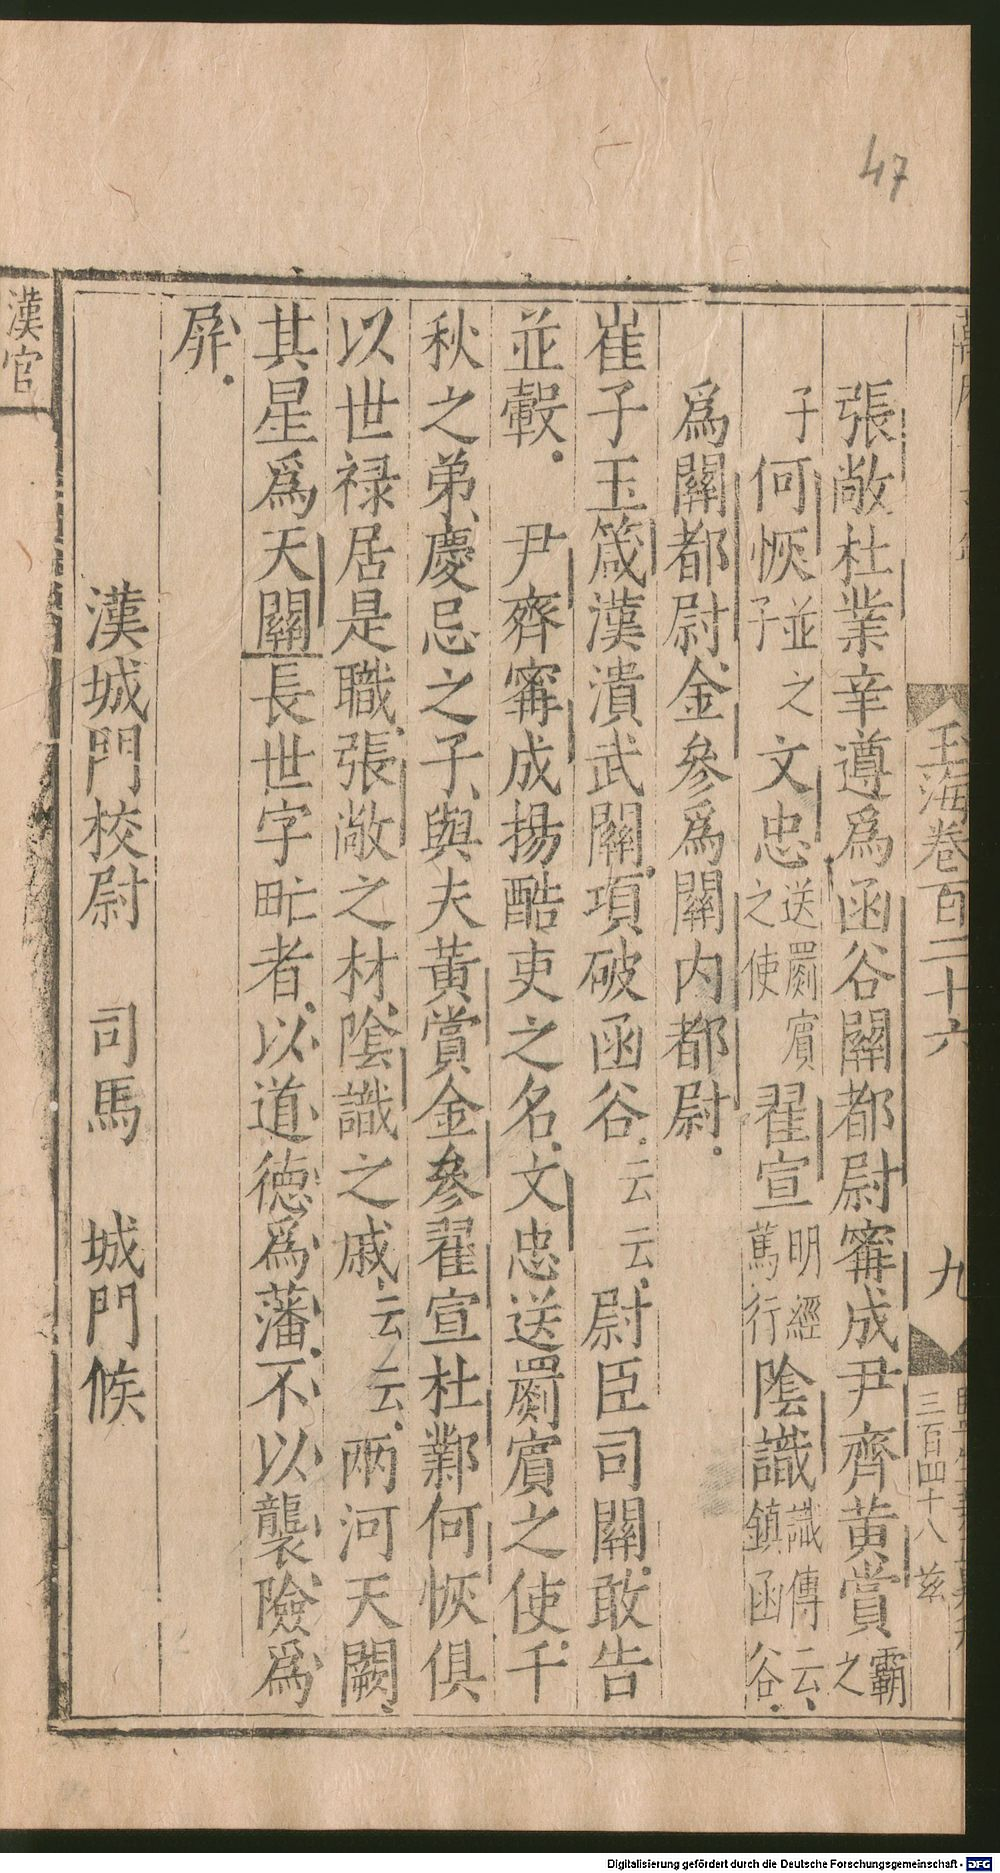 47
玉海卷百二十六
九
三百四十八 茲
張敞杜業辛遵爲函谷關都尉甯成尹齊黃賞霸之
子何恢並之子文忠送罽賓之使翟宣明經篤行陰識識傳云鎮函谷
爲關都尉金參爲關內都尉
崔子玉箴漢潰武關項破函谷云云尉臣司關敢告
並轂 尹齊甯成揚酷吏之名文忠送罽賓之使千
秋之弟慶忌之子與夫黃賞金參翟宣杜鄴何恢俱
以世祿居是職張敞之材陰識之戚云云兩河天闕
其星爲天關長世字甿者以道德爲藩不以襲險爲
屏
漢城門校尉 司馬 城門候
漢官
Digitalisierung gefördert durch die Deutsche Forschungsgemeinschaft - DFG